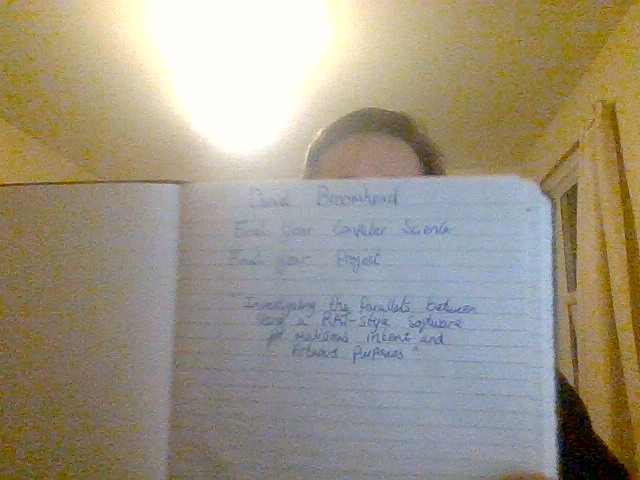 David Broomhead
Final year Computer Science
Final year Project
"Investigating the Parallels between
using a RAT-Style Software
for malicious intent and
purposes"